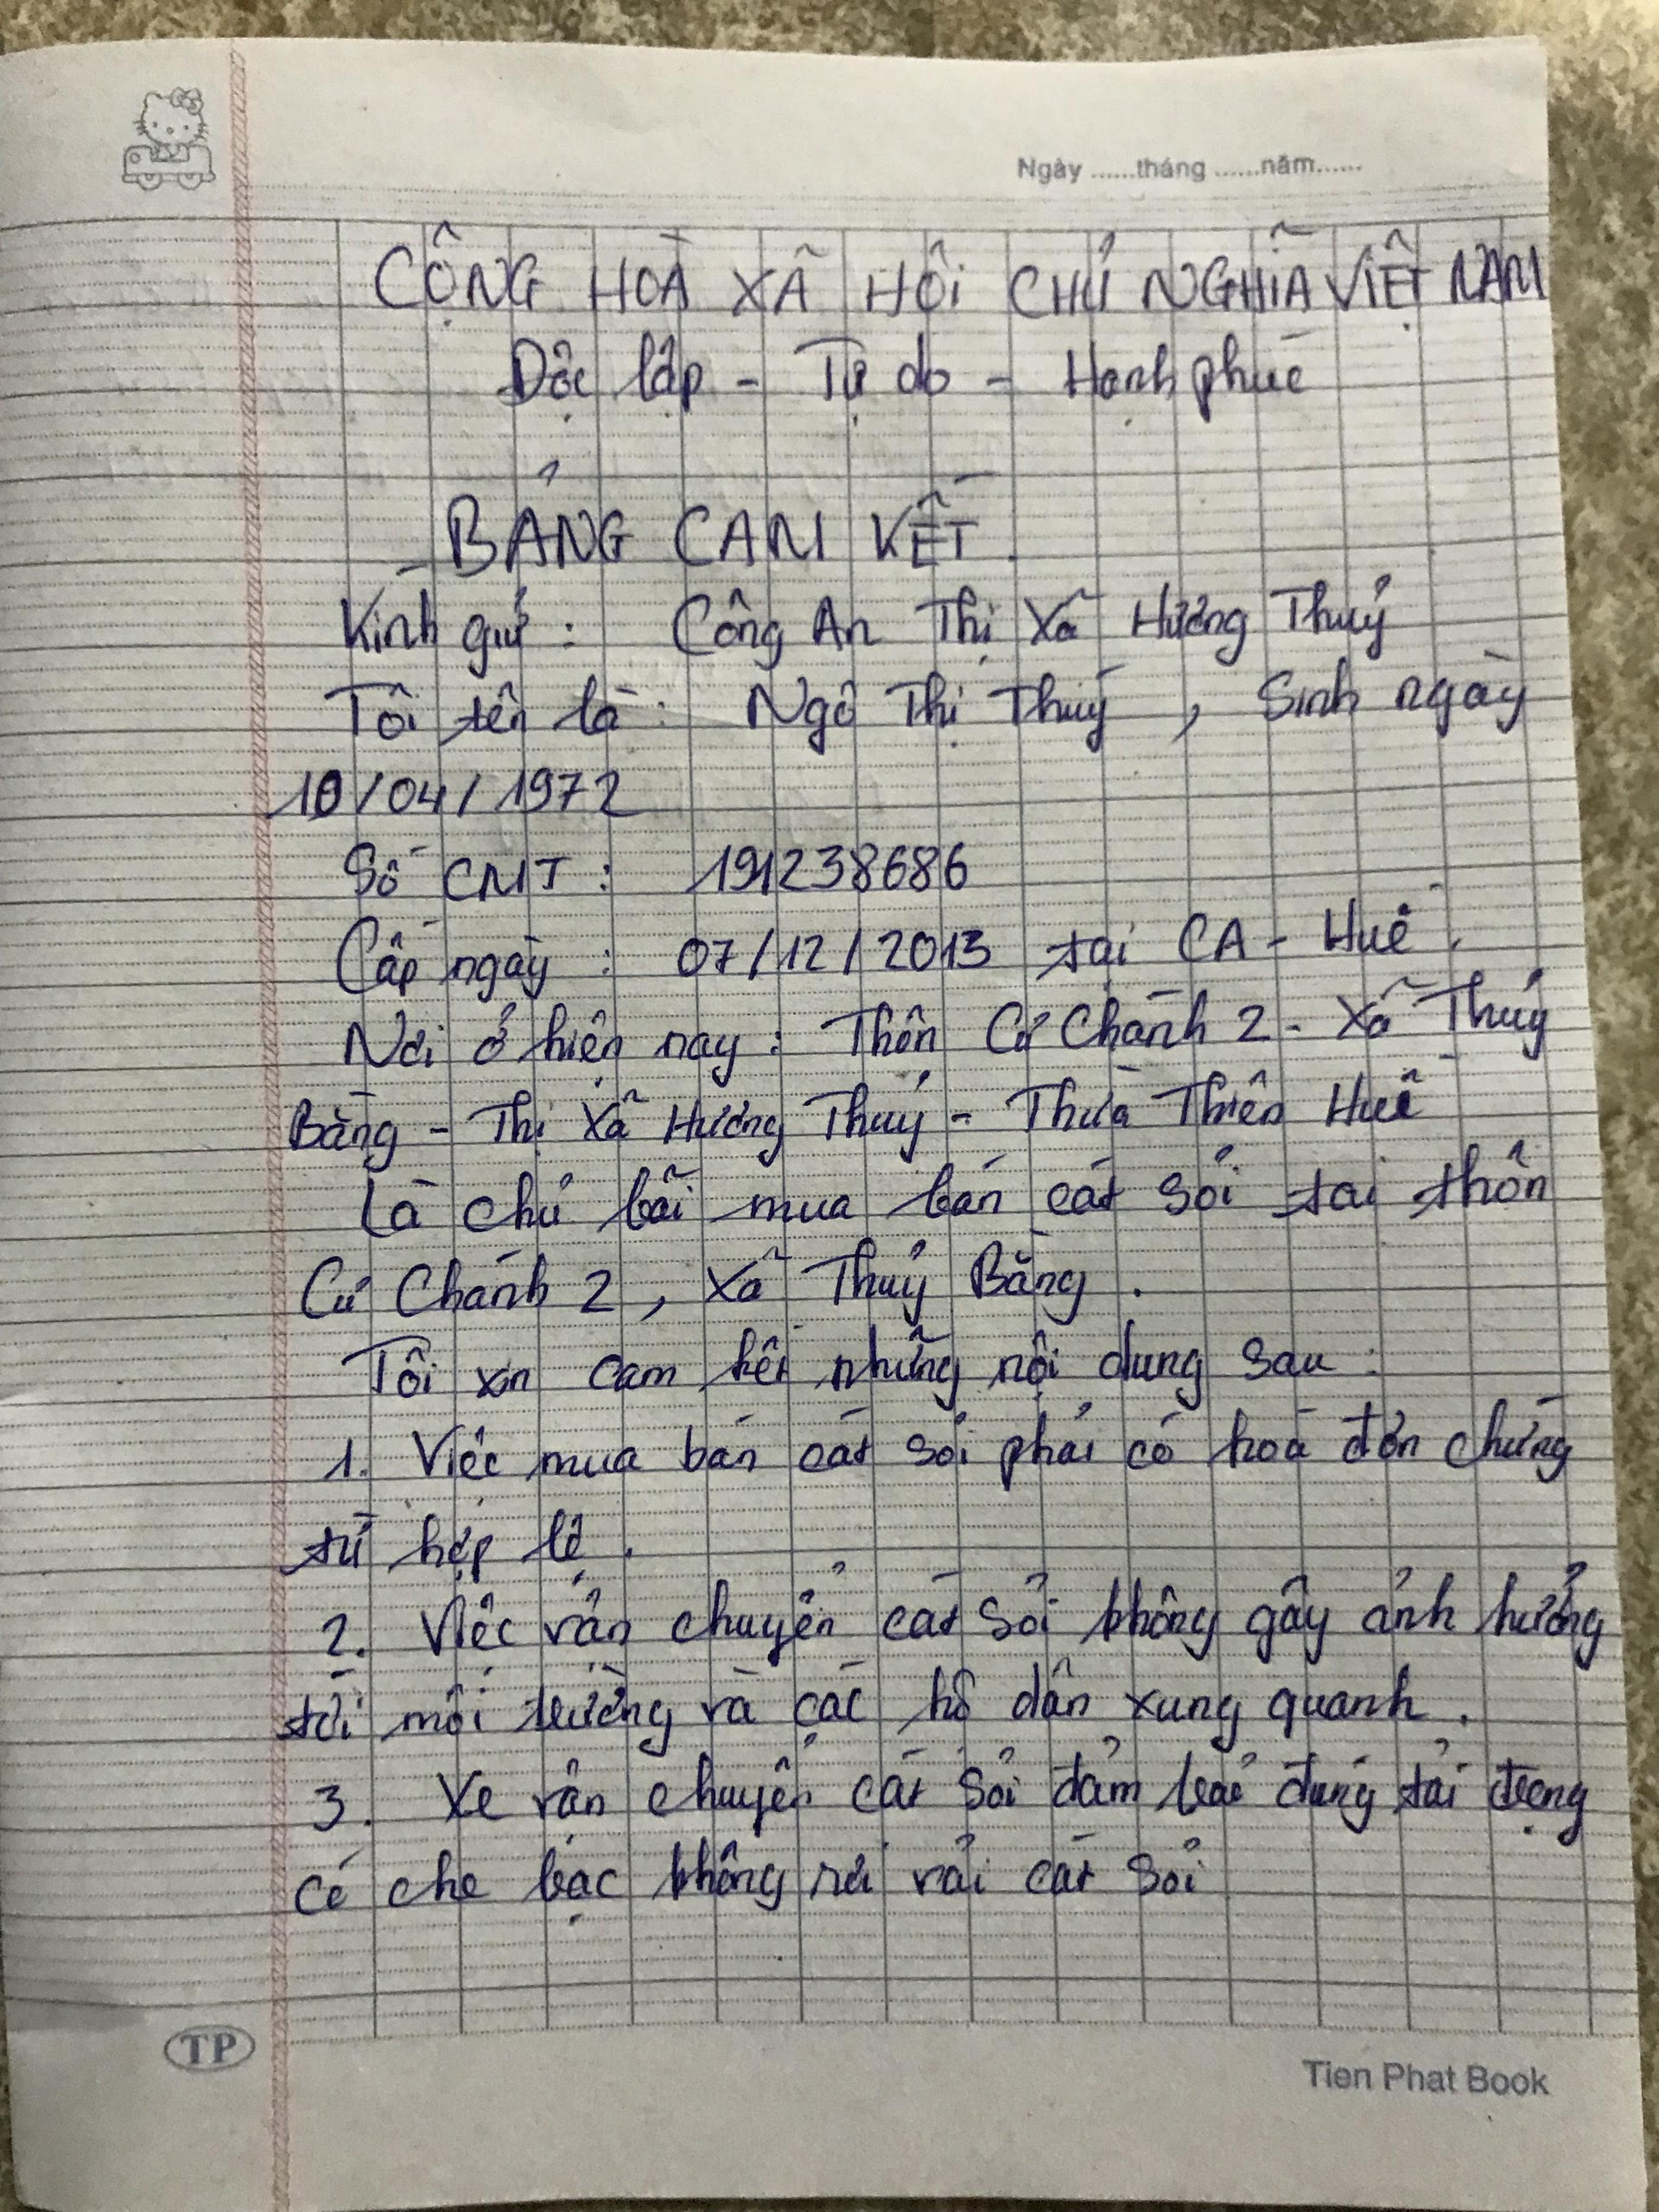 Ngày ......tháng ......năm......
CỘNG HOÀ XÃ HÔI CHỦ NGHĨA VIỆT NAM
Độc lập - Tự do - Hạnh phúc
BẢNG CAM KẾT.
Kính gửi : Công An Thị Xã Hương Thuỷ
Tôi tên là : Ngô Thị Thuý , Sinh ngày
10/04/1972
Số CMT : 191238686
Cấp ngày : 07/12/2013 tại CA - Huế .
Nơi ở hiện nay : Thôn Cư Chánh 2 - Xã Thuỷ
Bằng - Thị Xã Hương Thuỷ - Thừa Thiên Huế
Là chủ bãi mua bán cát sỏi tại thôn
Cư Chánh 2 , Xã Thuỷ Bằng .
Tôi xin cam kết những nội dung sau :
1. Việc mua bán cát sỏi phải có hoá đơn chứng
từ hợp lệ .
2. Việc vận chuyển cát sỏi không gây ảnh hưởng
tới môi trường và các hộ dân xung quanh .
3. Xe vận chuyển cát sỏi đảm bảo đúng tải trọng
có che bạc không rơi vải cát sỏi
TP
Tien Phat Book